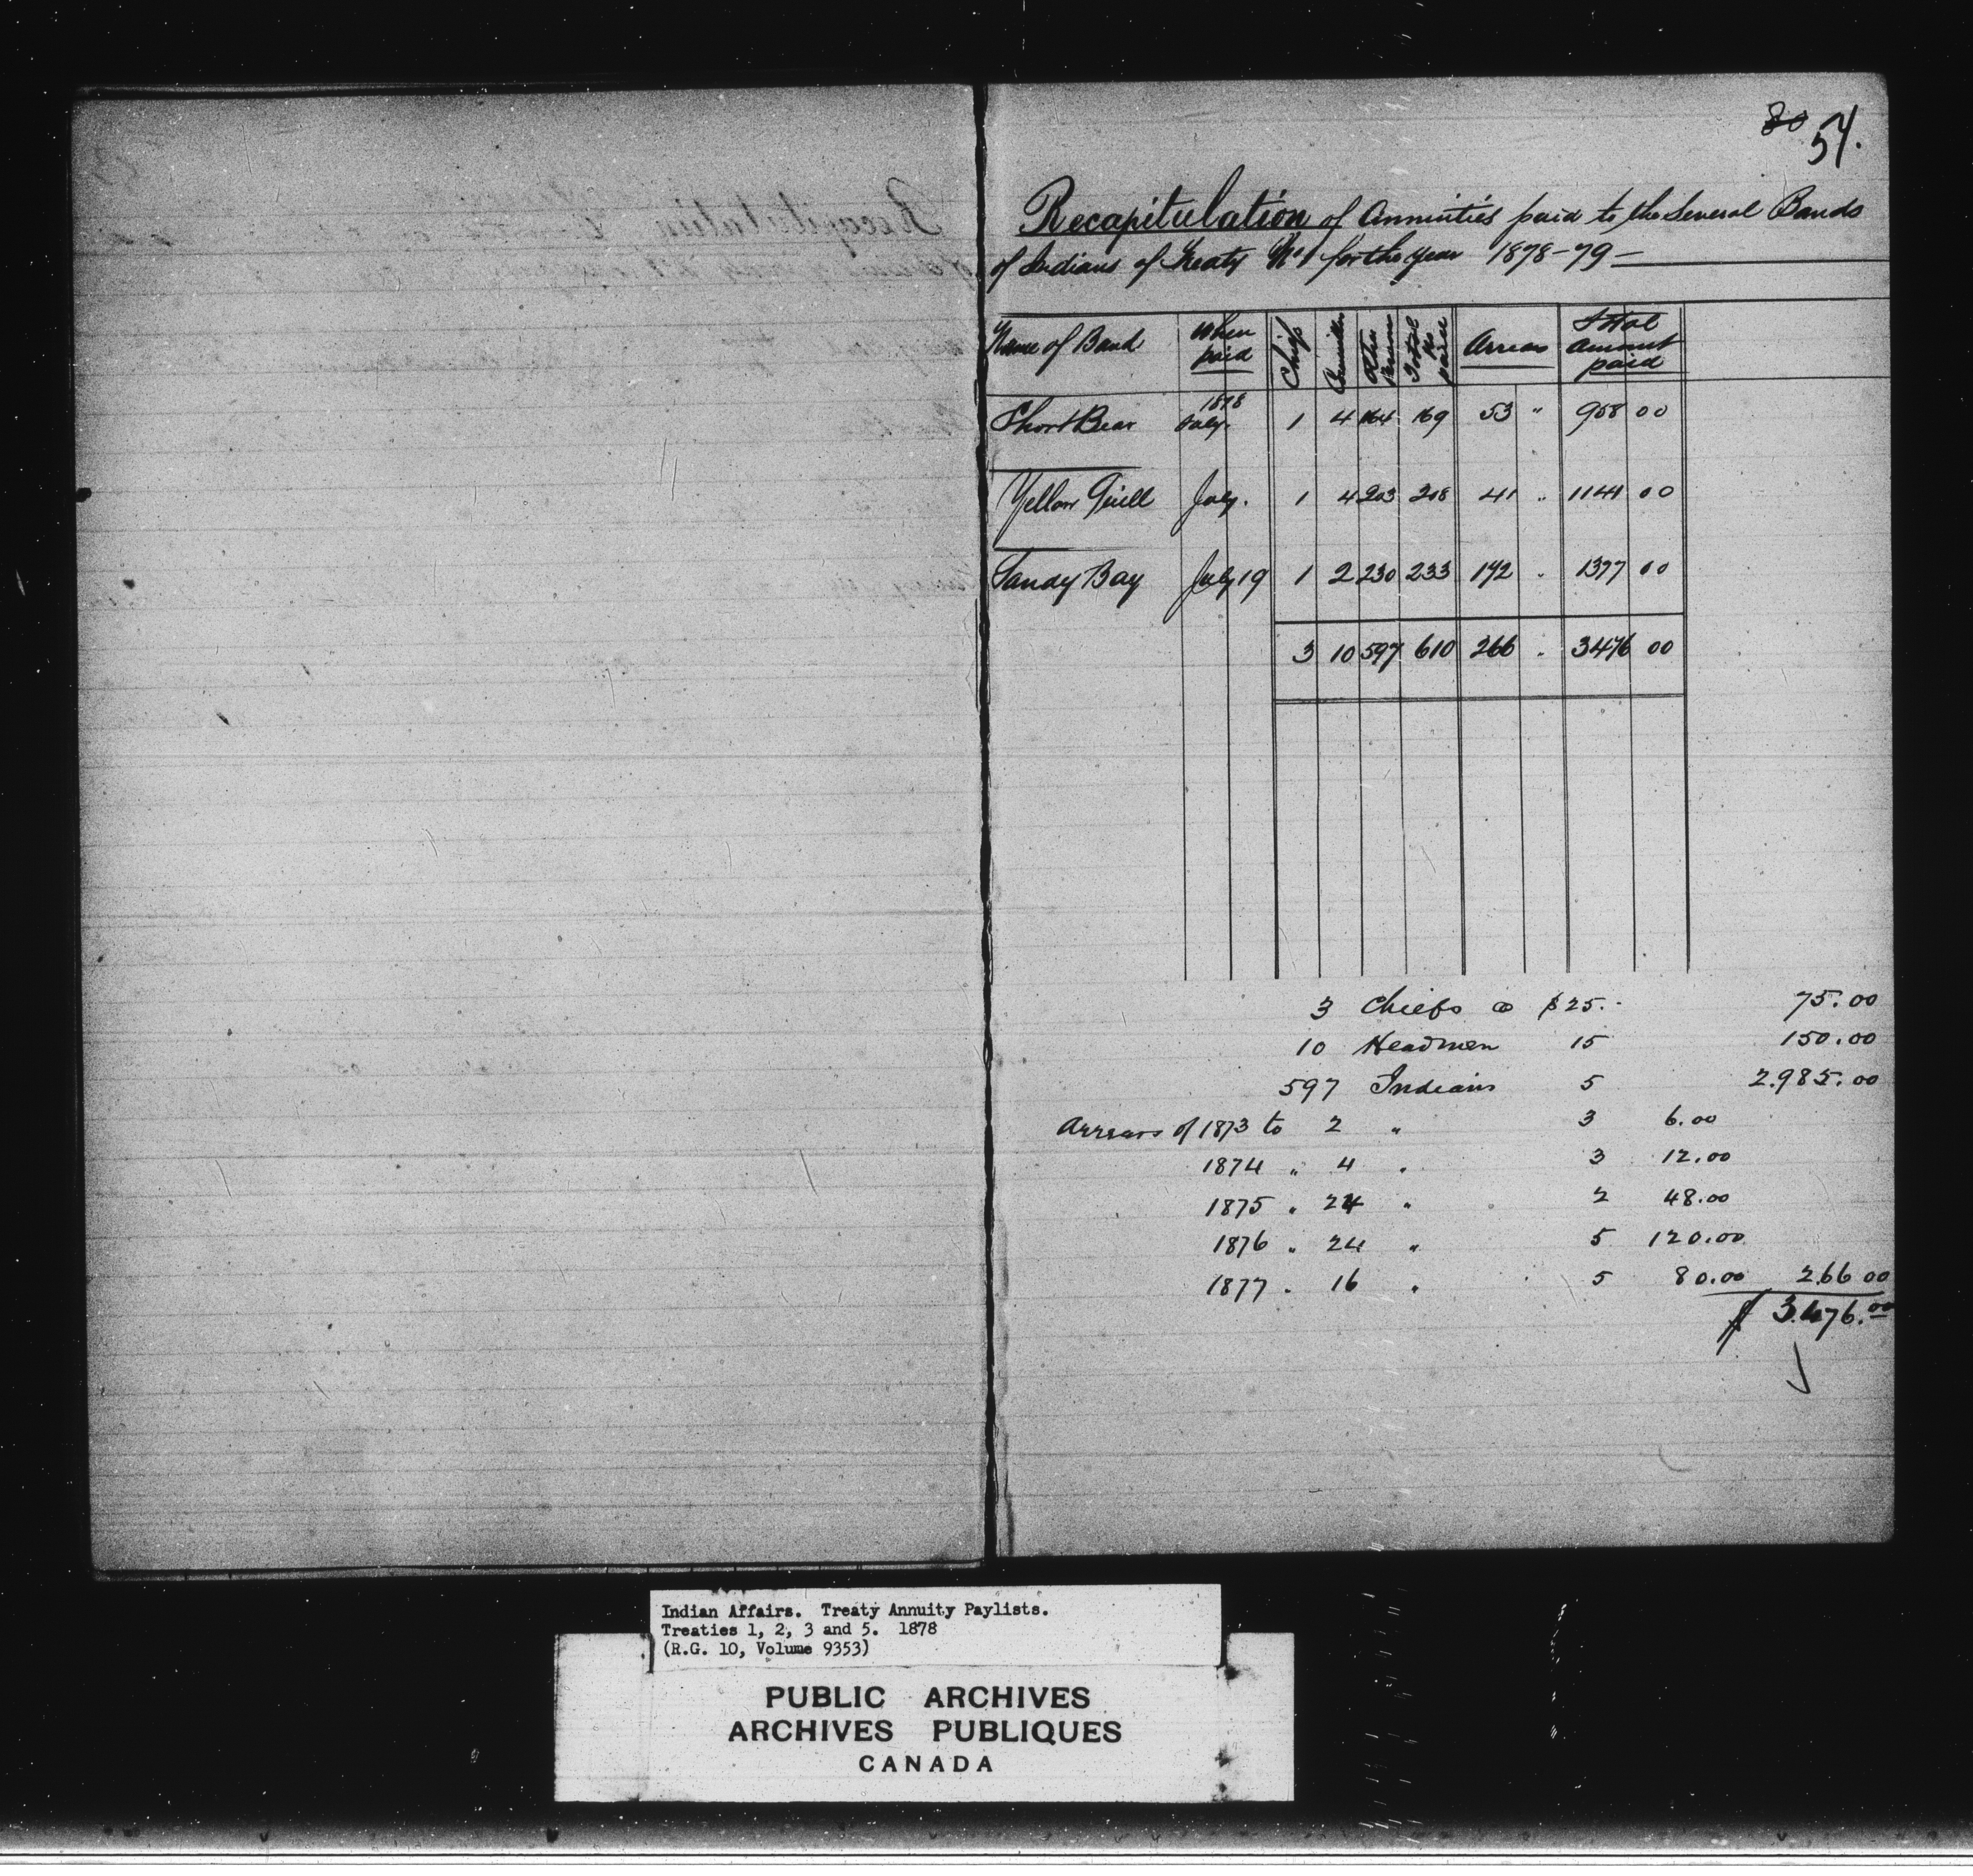 80 54.
Recapitulation of Annuities paid to the Several Bands
of Indians of Treaty No 1 for the year 1878-79 -
Name of Band When paid Chiefs Total No paid Arrears Total amount paid
Short Bear 1878 July. 1 4 164 169 53 " 958 00
Yellow Quill July. 1 4 203 208 41 " 1141 00
Sandy Bay July 19 1 2 230 233 172 " 1377 00
3 10 597 610 266 " 3476 00
3 Chiefs @ $25.- 75.00
10 Headmen 15 150.00
597 Indians 5 2.985.00
Arrears of 1873 to 2 " 3 6.00
1874 " 4 " 3 12.00
1875 " 24 " 2 48.00
1876 " 24 " 5 120.00
1877 " 16 " 5 80.00 266 00
$ 3.476.00
Indian Affairs. Treaty Annuity Paylists.
Treaties 1, 2, 3 and 5. 1878
(R.G. 10, Volume 9353)
PUBLIC ARCHIVES
ARCHIVES PUBLIQUES
CANADA